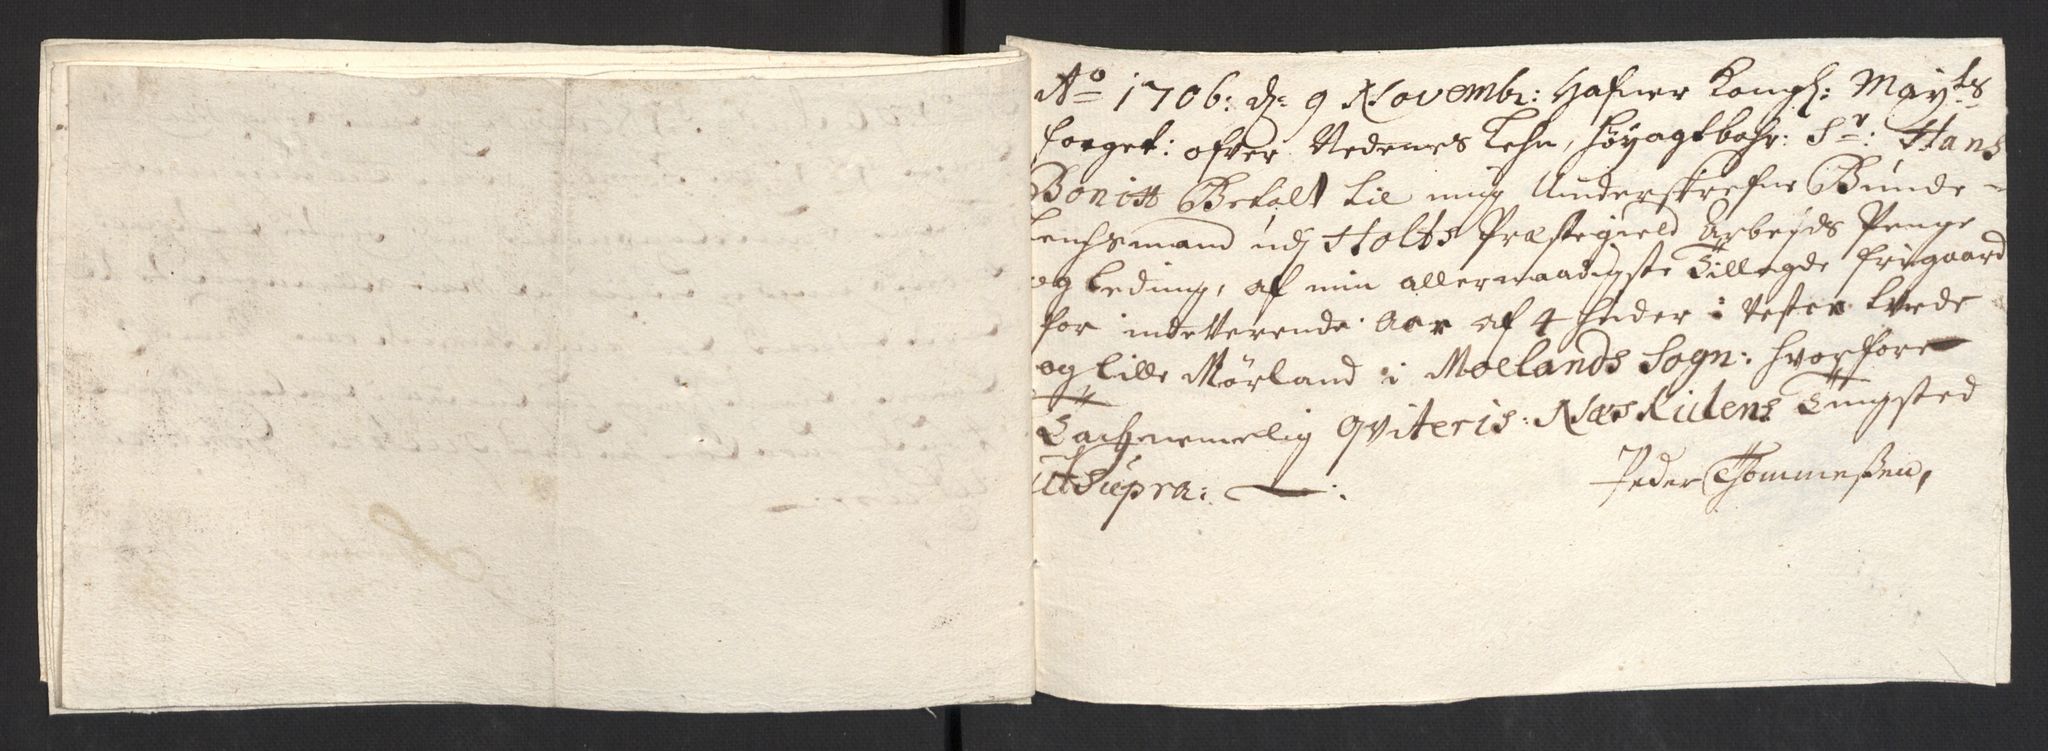 Ao 1706: d: 9 Novembr: Hafuer Kongl: Mayts
foeget: ofver Nedenes Lehn, Høyagtbahr: Sr: Hans
Bonitt Betalt til mig Underskrefne Bunde-
lenhsmand udj Holts Præstegield Arbejds Penge
og Leding, af min allernaadigste Tillagde frigaard
for indeverende Aar af 4 huder i Vester Lvede
og lille Mørland i Moelands Sogn: hvorfore
Tachnemelig Qviteris: Næs Kilens Tingsted
Ut Supra:
Peder Thommeßen,